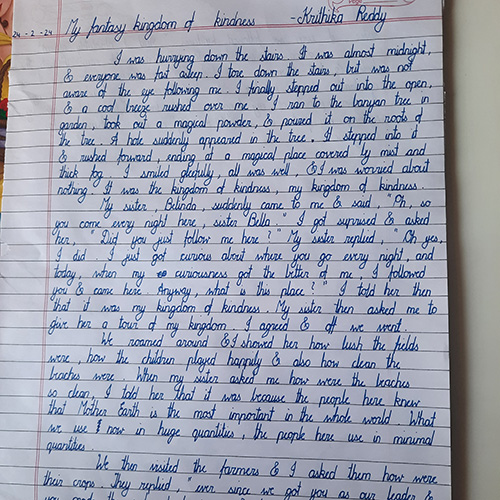 24-2-24
My fantasy kingdom of kindness - Kruthika Reddy
I was hurrying down the stairs. It was almost midnight,
& everyone was fast asleep. I tore down the stairs, but was not
aware of the eye following me. I finally stepped out into the open,
& a cool breeze rushed over me. I ran to the banyan tree in
garden, took out a magical powder, & poured it on the roots of
the tree. A hole suddenly appeared in the tree. I stepped into it
& rushed forward, ending at a magical place covered by mist and
thick fog. I smiled gleefully, all was well, & I was worried about
nothing. It was the kingdom of kindness, my kingdom of kindness.
My sister, Belinda, suddenly came to me & said, "Oh, so
you come every night here, sister Bella." I got suprised & asked
her, "Did you just follow me here?" My sister replied, "Oh yes,
I did. I just got curious about where you go every night, and
today, when my curiousness got the better of me, I followed
you & came here. Anyway, what is this place?" I told her then
that it was my kingdom of kindness. My sister then asked me to
give her a tour of my kingdom. I agreed & off we went.
We roamed around & I showed her how lush the fields
were, how the children played happily & also how clean the
beaches were. When my sister asked me how were the beaches
so clean, I told her that it was because the people here knew
that Mother Earth is the most important in the whole world. What
we use now in huge quantities, the people here use in minimal
quantities.
We then visited the farmers & I asked them how were
their crops. They replied, "ever since we got you as our leader &